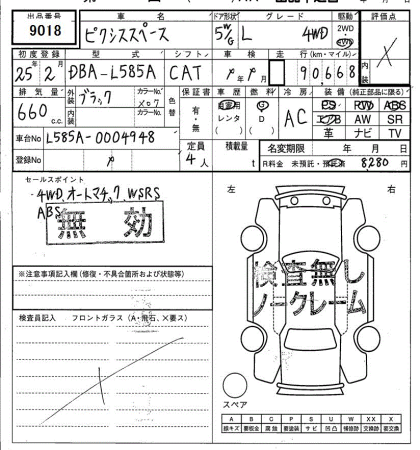 出品番号 車名 ドア形状 グレード 駆動 評価点
9018 ピクシススペース 5W/G L 4WD 2WD 4WD ×
初度登録 型式 シフト 車検 走行(km・マイル)
25年2月 DBA-L585A CAT 年 月 90,668
排気量 外装 ブラック カラーNo. X07 色替 保証書 車歴 燃料 冷房 装備(純正部品に限る)
660 c.c. 内装 カラーNo. 有・無 自家用 レンタ G D AC PS PW ABS
エアB AW SR
革 ナビ TV
車台No L585A-0004948 定員 4人 積載量 t 名変期限 年 月 日
登録No R料金 未預託・預託済 8280円
セールスポイント
4WD,オートマチック,WSRS
ABS
無効
左 右
検査無し
ノークレーム
※注意事項記入欄(修復・不具合箇所および状態等)
検査員記入 フロントガラス(A・飛石、×要ス)
スペア
A B C P S U W X XX
線キズ 要板金 腐蝕 要塗装 サビ 凹凸 補修跡 要交換 交換済